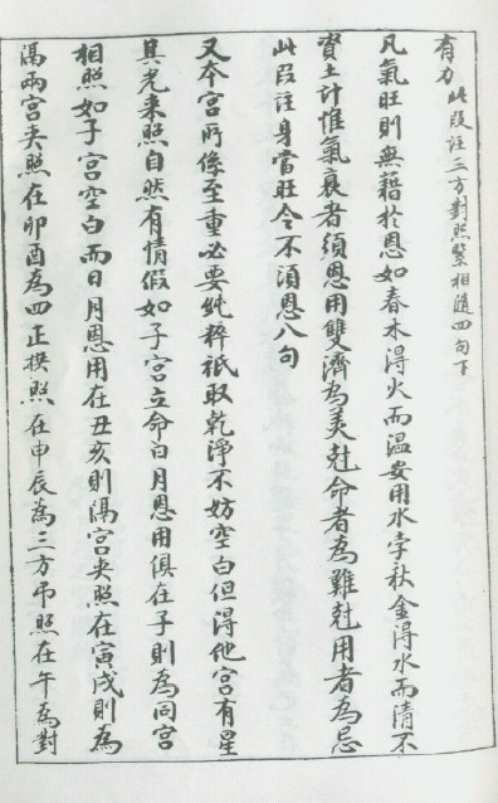 有力 此段注三方對照緊相隨四句下
凡氣旺則無藉於恩如春木得火而溫安用水孛秋金得水而清不
資土計惟氣衰者須恩用雙濟為美尅命者為難尅用者為忌
此段註身當旺令不須恩八句
又本宮所係至重必要純粹祇取乾淨不妨空白但得他宮有星
其光來照自然有情假如子宮立命日月恩用俱在子則為同宮
相照如子宮空白而日月恩用在丑亥則隔宮夾照在寅戌則為
隔兩宮夾照在卯酉為四正拱照在申辰為三方吊照在午為對